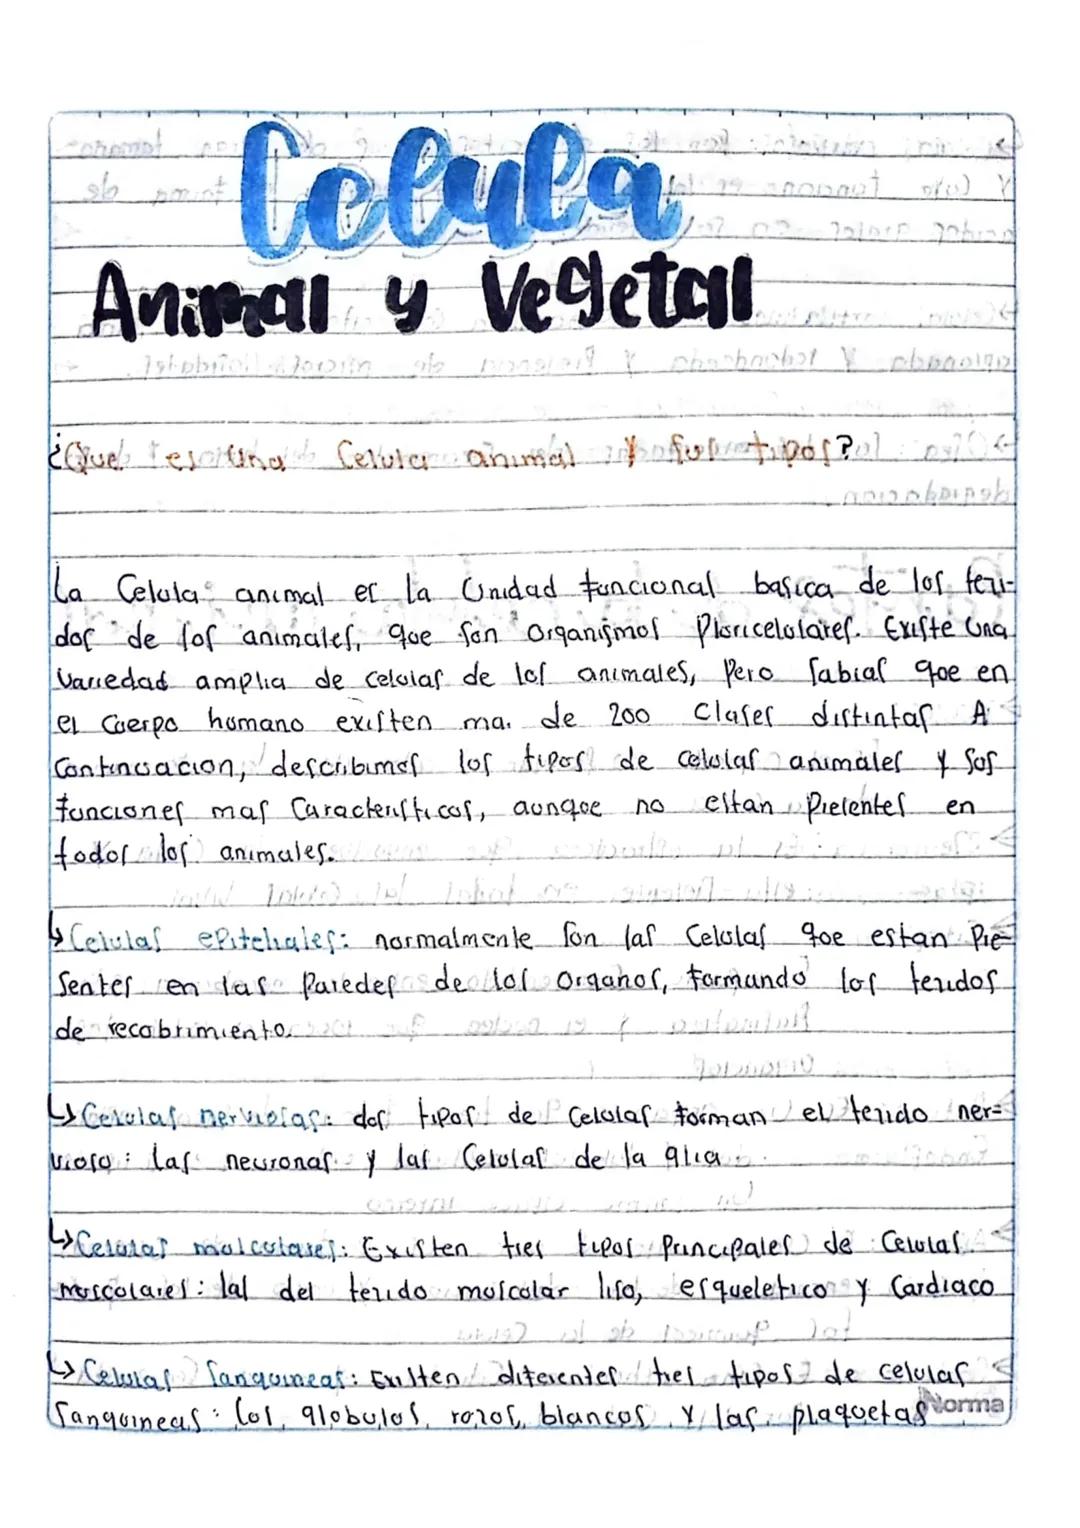 Celula
Animal y Vegetal
¿Que es una Celula animal y sus tipos?
La Celula animal es la Unidad funcional basica de los teji-
dos de los animales, que son Organismos Pluricelulares. Existe Una
Variedad amplia de celulas de los animales, Pero Sabias que en
el Cuerpo humano existen mas de 200 Clases distintas A
Continuacion, describimos los tipos de celulas animales y Sus
funciones mas Caracteristicas, aunque no estan Presentes en
todos los animales.
↳ Celulas epiteliales: normalmente Son las Celulas que estan Pre-
Sentes en las Paredes de los Organos, formando los tejidos
de recubrimiento.
↳ Celulas nerviosas: dos tipos de Celulas forman el tejido ner-
vioso: las neuronas y las Celulas de la glia
↳ Celulas musculares: Existen tres tipos Principales de Celulas
musculares: las del tejido muscular liso, esqueletico y Cardiaco
↳ Celulas Sanguineas: Existen diferentes tres tipos de celulas
Sanguineas: los globulos rojos, blancos y las plaquetas
Norma